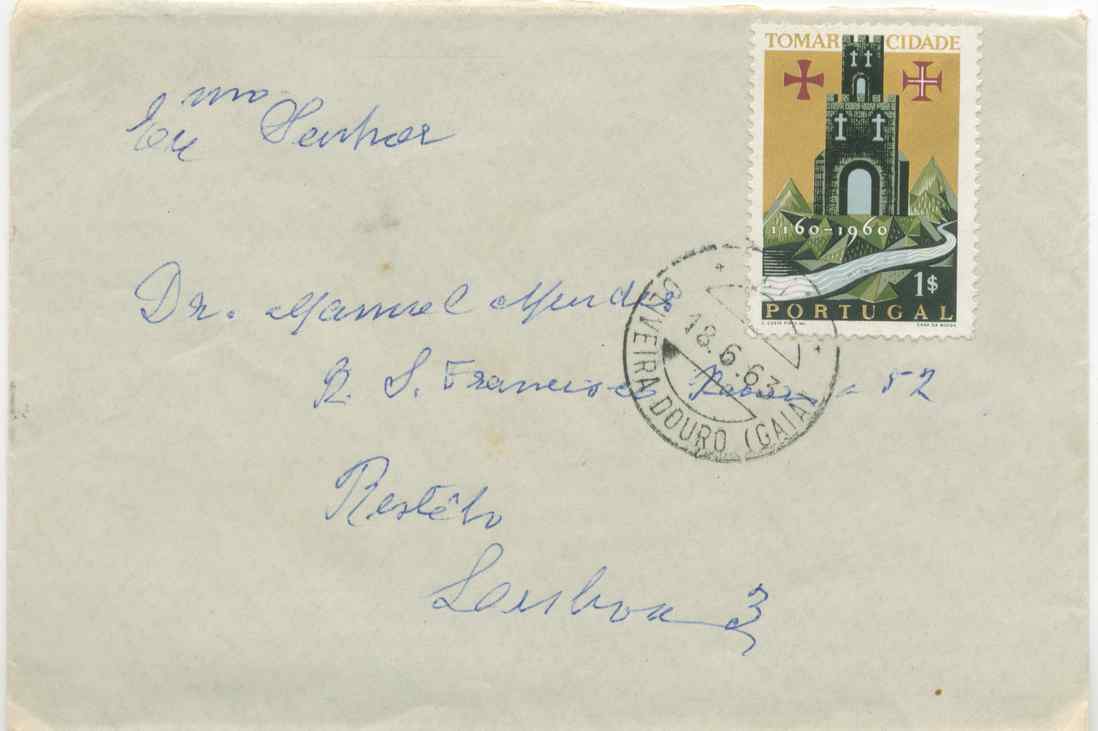 TOMAR CIDADE
1160-1960
1$
PORTUGAL
CASA DA MOEDA
Exmo Senhor
Dr. Manuel Mendes
18.6.63
OLIVEIRA DOURO (GAIA)
R. S. Francisco 52
Restêlo
Lisboa 3